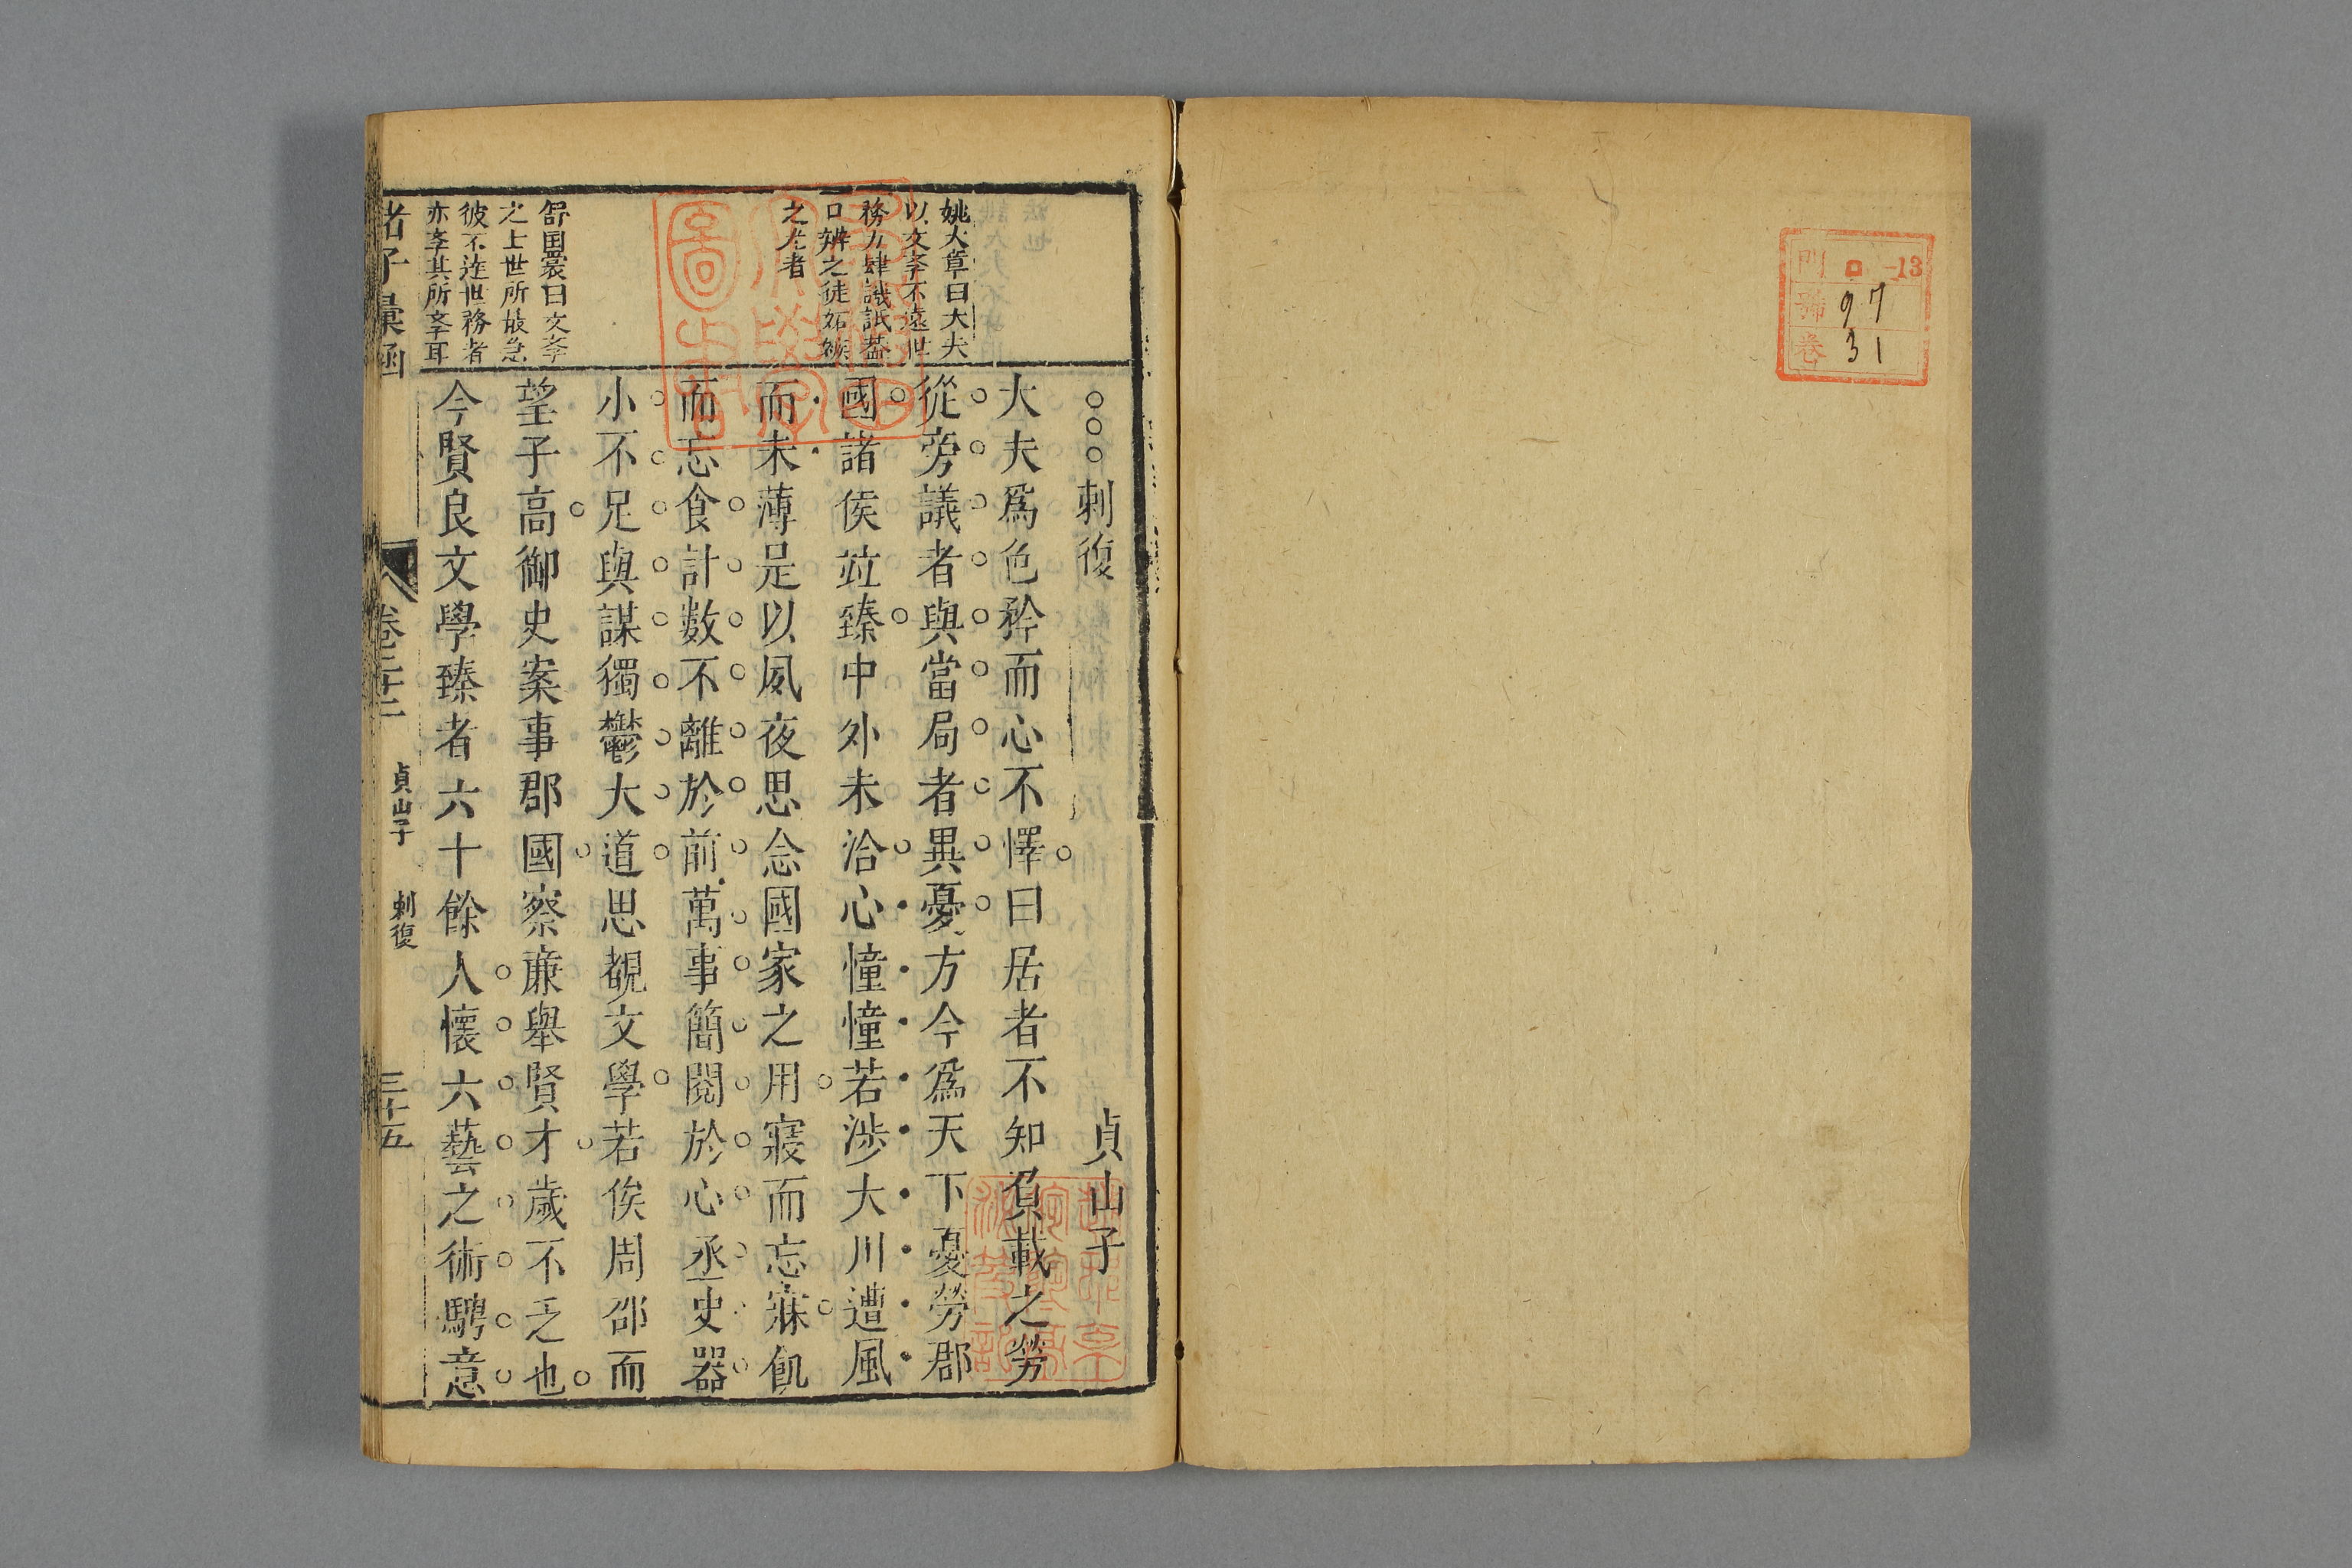 門 ロ -13
號 97
卷 31
刺復 貞山子
大夫爲色矜而心不懌曰居者不知負載之勞
從旁議者與當局者異憂方今爲天下憂勞郡
國諸侯竝臻中外未洽心憧憧若涉大川遭風
而未薄是以夙夜思念國家之用寢而忘寐飢
而忘食計數不離於前萬事簡閱於心丞史器
小不足與謀獨鬱大道思覩文學若俟周邵而
望子高御史案事郡國察廉舉賢才歲不乏也
今賢良文學臻者六十餘人懷六藝之術騁意
姚大章曰大夫
以文李不遠世
務力肆譏詆葢
口辨之徒妬嫉
之尤者
舒国裳曰文李
之上世所最急
彼不達世務者
亦李其所李耳
諸子彙函 卷二十二 貞山子 刺復 三十五